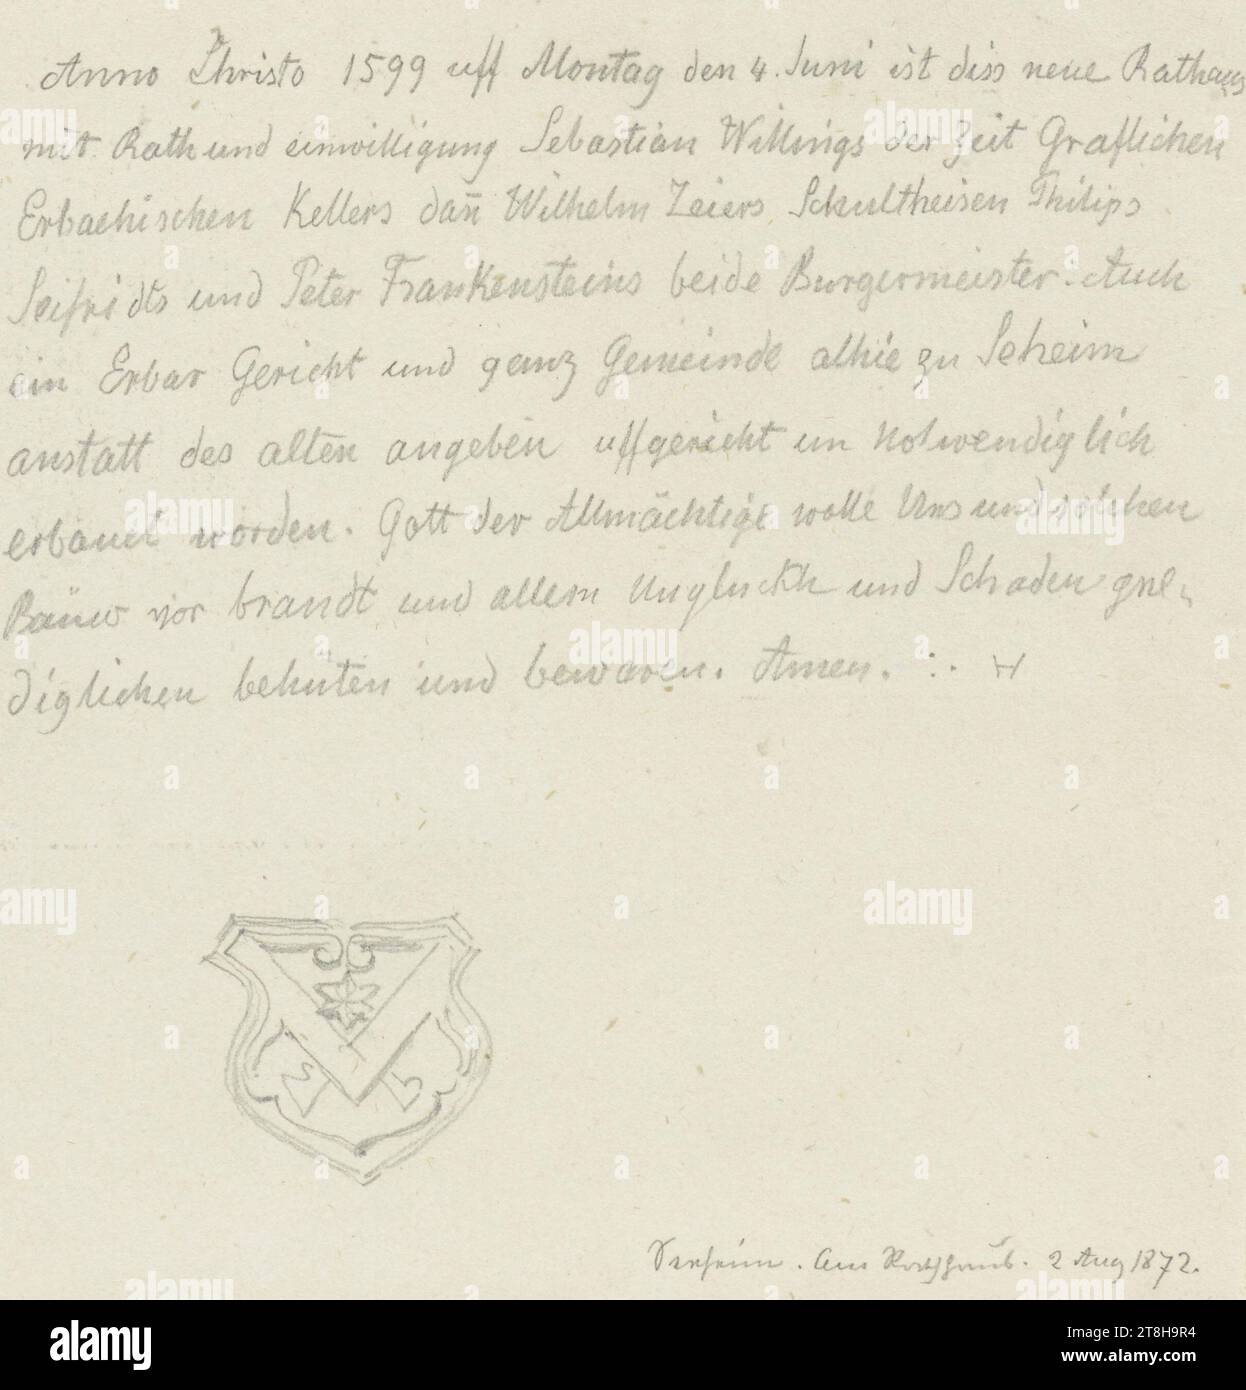 Anno Christo 1599 uff Montag den 4. Juni ist diss neue Rathaus
mit Rath und einwilligung Sebastian Willings der Zeit Graflichen
Erbachischen Kellers dan̄ Wilhelm Zeiers Schultheisen Philips
Seifridts und Peter Frankensteins beide Burgermeister. Auch
ein Erbar Gericht und ganz Gemeinde alhie zu Seheim
anstatt des alten angeben uffgericht un Notwendiglich
erbauet worden. Gott der Allmächtige wolle Uns und solchen
Bauw vor brandt und allem Ungluckh und Schaden gne-
diglichen behuten und bewaren. Amen.
Seeheim. Am Rathhaus. 2 Aug 1872.
alamy
Image ID: 2T8H9R4
www.alamy.com